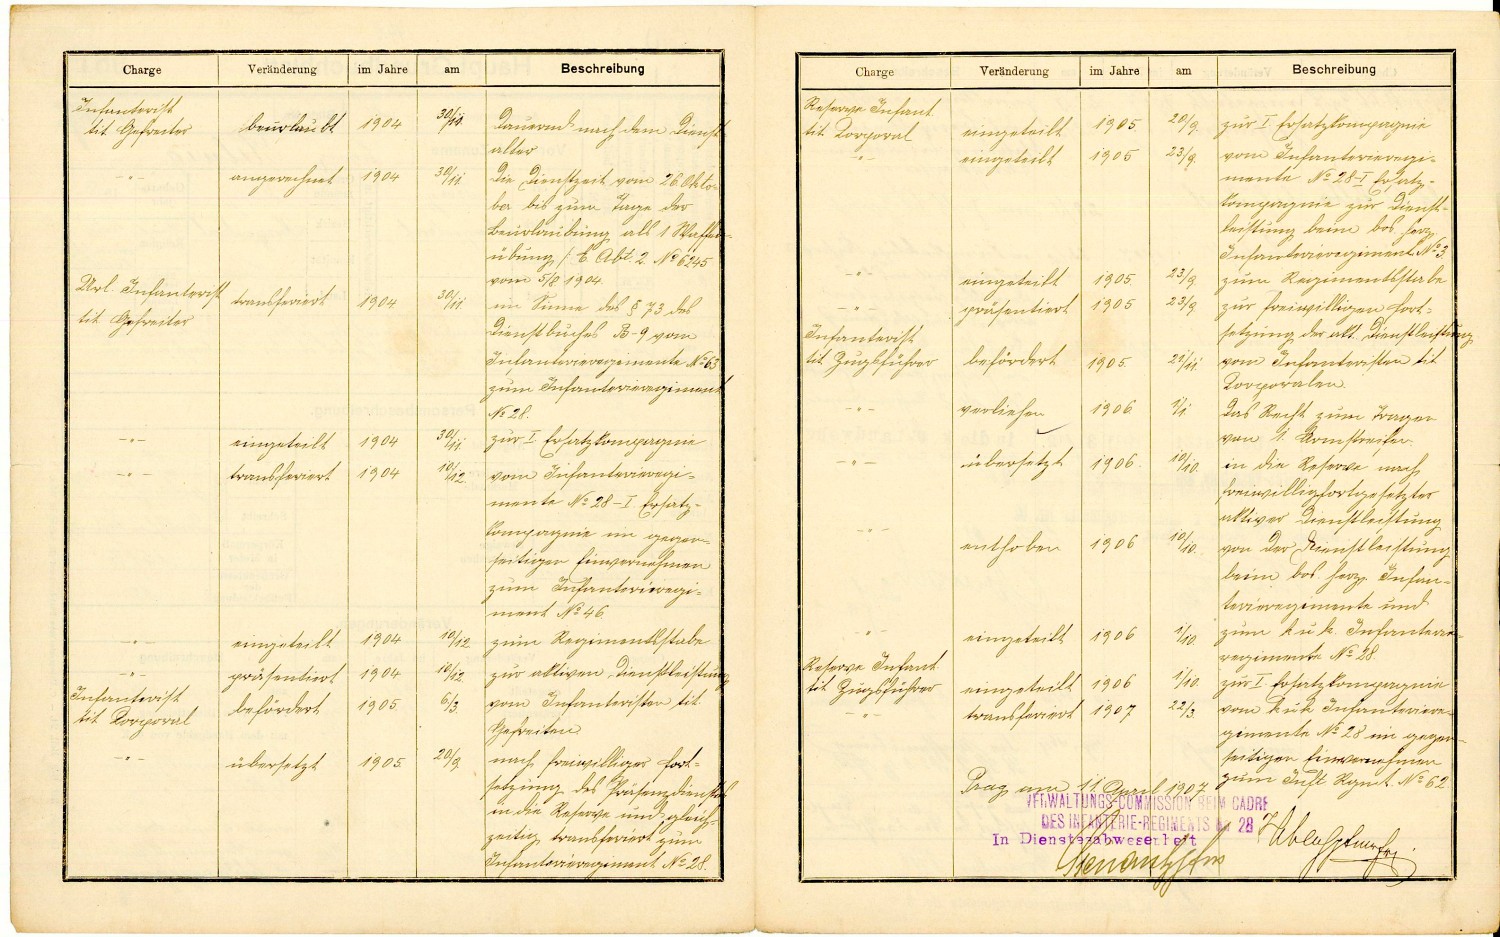 Charge Veränderung im Jahre am Beschreibung
Infanterist
tit Gefreiter beurlaubt 1904 30/11. Dauernd nach dem Dienst
alter
-"- angerechnet 1904 30/11. Die Dienstzeit vom 26. Okto-
ber bis zum Tage der
Beurlaubung als 1 Waffen-
übung / E Abt. 2 No 6245
vom 5/8 1904.
Url. Infanterist
tit Gefreiter transferiert 1904 30/11. im Sinne des § 73 des
Dienstbuches B-9 vom
Infanterieregimente No 63
zum Infanterieregiment
No 28.
-"- eingeteilt 1904 30/11. zur I. Ersatzkompagnie
-"- transferiert 1904 10/12. vom Infanterieregi-
mente No 28-I. Ersatz-
kompagnie im gegen-
seitigen Einvernehmen
zum Infanterieregi-
ment No 46.
-"- eingeteilt 1904 10/12. zum Regimentsstabe
-"- präsentiert 1904 10/12 zur aktiven Dienstleistung
Infanterist
tit Corporal befördert 1905 6/3. vom Infanteristen tit
Gefreiten
-"- übersetzt 1905 20/9. nach freiwilliger Fort-
setzung des Präsenzdienstes
in die Reserve und gleich-
zeitig transferiert zum
Infanterieregiment No 28.
Charge Veränderung im Jahre am Beschreibung
Reserve Infant
tit Corporal eingeteilt 1905. 20/9. zur I Ersatzkompagnie
-"- eingeteilt 1905 23/9. vom Infanterieregi-
mente No 28-I Ersatz-
kompagnie zur Dienst-
leistung beim bos. herz.
Infanterieregiment No 3
-"- eingeteilt 1905. 23/9. zum Regimentsstabe
-"- präsentiert 1905 23/9. zur freiwilligen Fort-
setzung der akt. Dienstleistung
Infanterist
tit Zugsführer befördert 1905. 21/11. vom Infanteristen tit
Corporalen.
-"- verliehen 1906 1/1. Das Recht zum Tragen
von 1. Armstreifen.
-"- übersetzt 1906. 10/10. in die Reserve nach
freiwillig fortgesetzter
aktiver Dienstleistung
-"- enthoben 1906 10/10. von der Dienstleistung
beim bos. herz. Infan-
terieregimente und
-"- eingeteilt 1906 1/10. zum k u k. Infanterie-
regimente No 28.
Reserve Infant.
tit Zugsführer eingeteilt 1906 1/10. zur I Ersatzkompagnie
-"- transferiert 1907 22/3. vom k u k Infanteriere-
gimente No 28 im gegen-
seitigen Einvernehmen
zum Inft Rgmt. No 62
Prag am 11 April 1907
VERWALTUNGS-COMMISSION BEIM CADRE
DES INFANTERIE-REGIMENTS No 28
In Dienstesabwesenheit